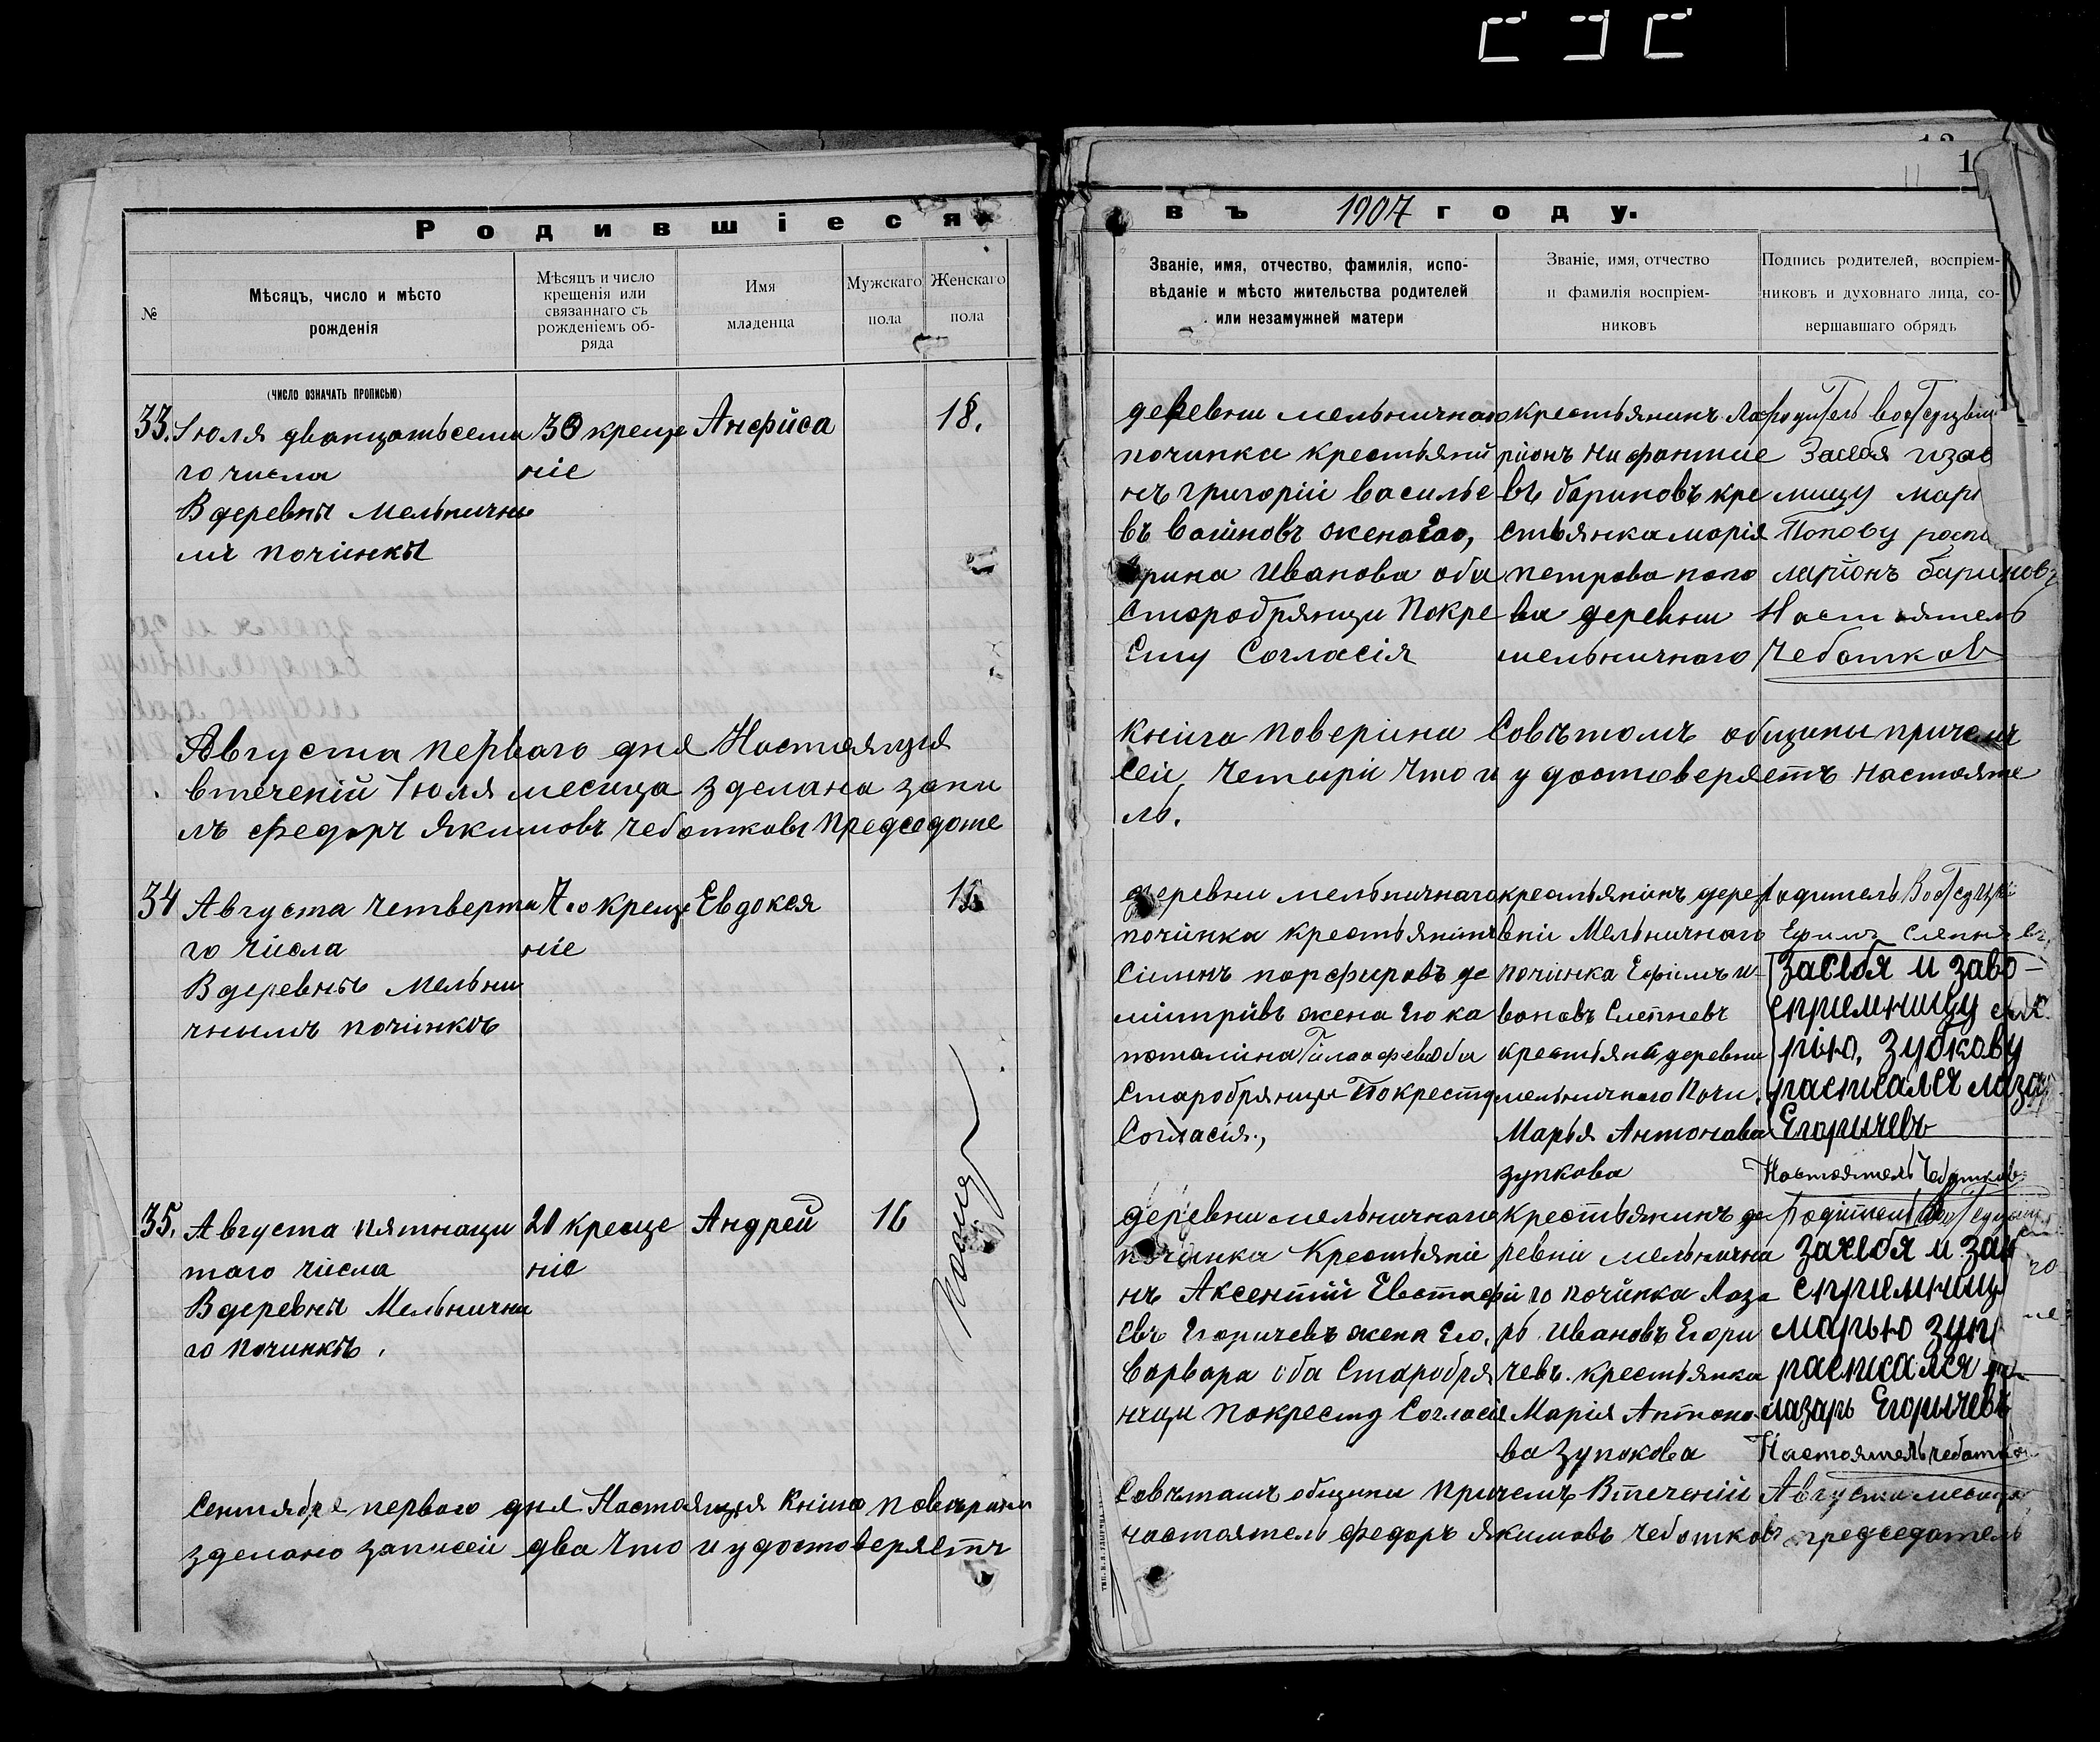 Родившіеся
въ 1907 году.
№
Мѣсяцъ, число и мѣсто
рожденія
Мѣсяцъ и число
крещенія или
связаннаго съ
рожденіемъ об-
ряда
Имя
младенца
Мужскаго
пола
Женскаго
пола
Званіе, имя, отчество, фамилія, испо-
вѣданіе и мѣсто жительства родителей
или незамужней матери
Званіе, имя, отчество
и фамилія воспріем-
никовъ
Подпись родителей, воспріем-
никовъ и духовнаго лица, со-
вершавшаго обрядъ
(число означать прописью)
33.
Іюля дванцатьсема
го числа
В деревнѣ Мельнични
мъ починкѣ
30 креще
ніе
Анфиса
18.
деревни мельничнаго
починка крестьяни
нъ григорій василье
въ вашновъ жена Его,
Ирина Иванова оба
Старобрянци Покре
сту Согласія
крестьянинъ Ла
ріонъ нифантие
въ бариновъ кре
стьянка марія
петрова попо
ва деревни
мельничнаго
родитель
Засебя изав
мицу мар
Попову
ларіонъ бариновъ
Настоятель
Чебатков
Августа перваго дня Настоящия
втеченій Іюля месица зделана запи
лъ федоръ якимовъ чебатковъ председате
книга поверіна Совѣтомъ общины причемъ
сей четыри что и удостоверяетъ настояте
ль.
34
Августа четверта
го числа
В деревнѣ Мельни
чнымъ починкѣ
7го креще
ніе
Евдокея
1
деревни мельничнаго
починка крестьянинъ
Силинъ порфировъ де
митрівъ жена Его ка
поталина
Старобрянци Покресту
Согласія.,
крестьянинъ дере
вніи Мельничнаго
починка Ефимъ и
вановъ Слепневъ
крестьянка деревни
мельничнаго Почи
Марья Антонава
зупкова
родитель
Ефимъ Слепневъ
Засебя и заво
сприемницу
рію, Зубкову
расписался лаза
Егорычевъ
Настоятель Чебатковъ
35.
Августа пятнаци
таго числа
В деревнѣ Мельнични
го Починкѣ.
21 креще
ніе
Андрей
16
деревни мельничнаго
починка Крестьяни
нъ Аксентій Евстафи
евъ Егоричевъ жена Его.
Варвара оба Старобря
нци покресту Согласіе
крестьянинъ де
ревніи мельнична
го починка Лаза
рь Ивановъ Егори
чевъ. крестьянка
Марія Антоно
ва Зупокова
Родитель
засебя и зав
сприемницу
марью зуп
расписался
лазарь Егорычевъ
Настоятель чебатков
Сентября перваго дня Настоящия Книга поверина
зделано записей два что и удостоверяетъ
Совѣтомъ общины причемъ Втеченій Августа месица
настоятель федоръ якимовъ чебатковъ председатель